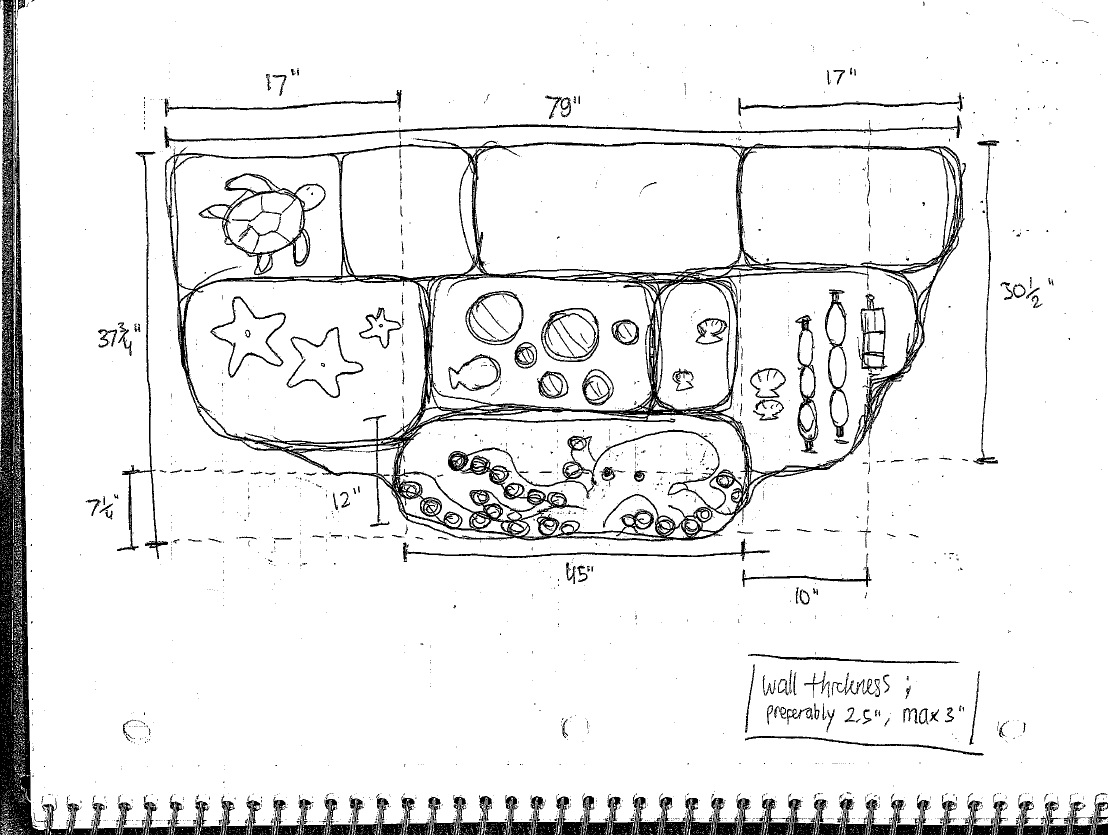 17"
17"
79"
30½"
37¾"
12"
7¼"
45"
10"
wall thickness ;
preferably 2.5", max 3"